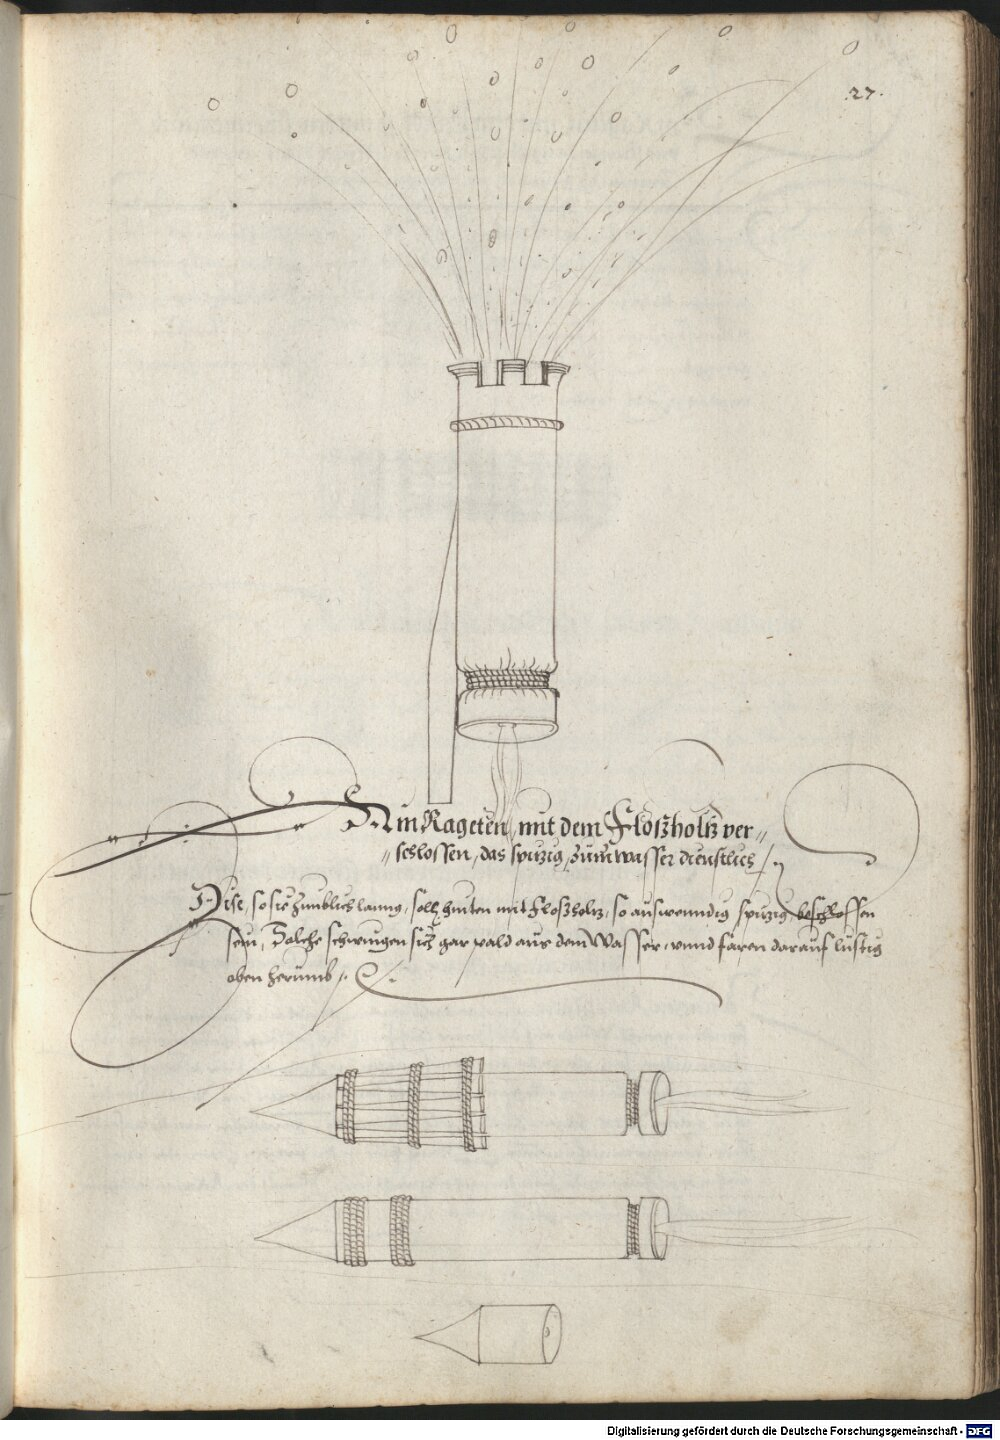 .27.
Ain Rageten, mit dem Floszholtz ver„
„schlossen, das spitzig, zum wasser dienstlich /.
Dise, so sie zimblich lanng, soll hinten mit Floszholtz, so auswenndig spitzig beschlossen
sein, Solche schwingen sich gar pald aus dem Wasser, vnnd faren darauf lustig
oben herumb /.
Digitalisierung gefördert durch die Deutsche Forschungsgemeinschaft - DFG